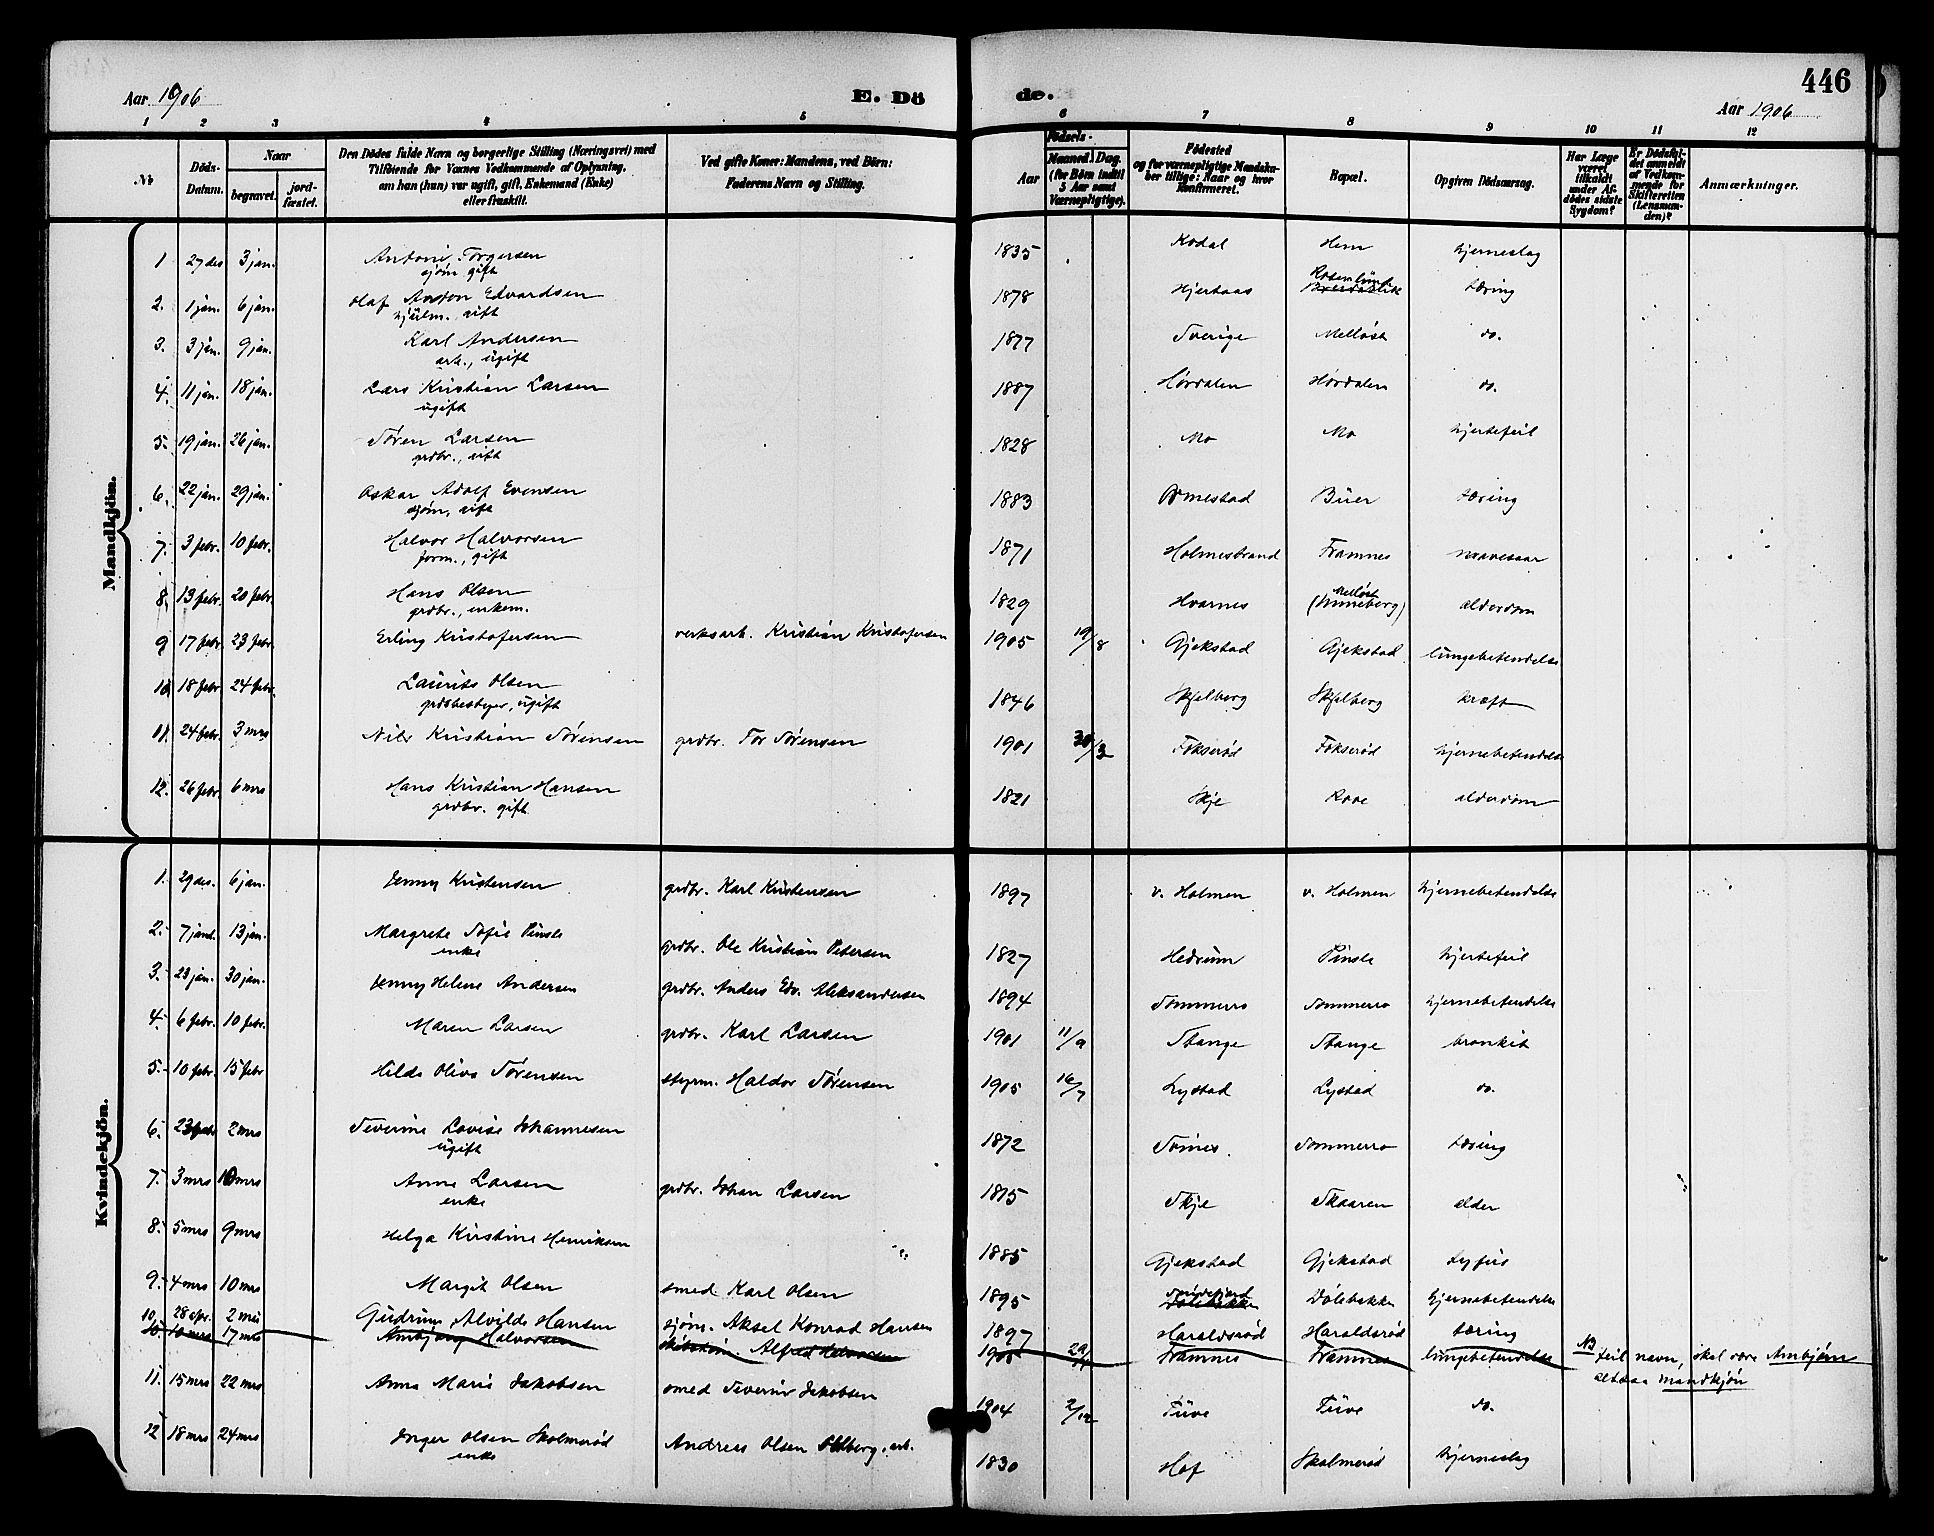 446
Aar 1906 E. Dö de. Aar 1906
1 2 3 4 5 6 7 8 9 10 11 12
No
Döds-Datum.
Naar
begravet. jordfæstet.
Den Dödes fulde Navn og borgerlige Stilling (Næringsvei) med
Tilföiende for Voxnes Vedkommende af Oplysning,
om han (hun) var ugift, gift, Enkemand (Enke)
eller fraskilt.
Ved gifte Koner: Mandens, ved Börn:
Faderens Navn og Stilling.
Födsels-
Aar
Maaned. Dag.
(for Börn indtil
5 Aar samt
Værnepligtige).
Födested
og for værnepligtige Mandskaber tillige: Naar og hvor
Konfirmeret.
Bopæl.
Opgiven Dödsaarsag.
Har Læge
været
tilkaldt
under Afdödes sidste
Sygdom?
Er Dödsfaldet anmeldt
af Vedkommende for
Skifteretten
(Lensmanden)?
Anmærkninger.
Mandkjön.
1 27 des 3 jan. Antoni Torgersen 1835 Kodal Hem hjerneslag
sjøm. gift
2. 1 jan. 6 jan. Olaf Anton Edvardsen 1878 Hjertaas Rosenlund tæring
gift
3. 3 jan. 9 jan. Karl Andersen 1877 Sverige Melløst do.
arb., ugift
4. 11 jan. 18 jan. Lars Kristian Larsen 1887 Hørdalen Hørdalen do.
ugift
5. 19 jan. 26 jan. Søren Larsen 1828 Mo Mo hjertefeil
grdbr., gift
6. 22 jan. 29 jan. Oskar Adolf Evensen 1883 Ormestad Buer tæring
sjøm, gift
7. 3 febr. 10 febr. Halvor Halvorsen 1871 Holmestrand Framnes mavesaar
form., gift
8. 13 febr. 20 febr. Hans Olsen 1829 Hvarnes Melløst alderdom
grdbr., enkem.
9 17 febr. 23 febr. Erling Kristofersen verksarb. Kristian Kristofersen 1905 19/8 Gjekstad Gjekstad lungebetendelse
10 18 febr. 24 febr. Laurits Olsen 1846 Skjelberg Skjelberg kræft
grdsbestyrer, ugift
11. 24 febr. 3 mrs Nils Kristian Sørensen grdbr. Tor Sørensen 1901 30/3 Fokserød Fokserød hjernebetendelse
12. 26 febr. 6 mrs Hans Kristian Hansen 1821 Skje Rove alderdom
grdbr. gift
Kvindekjön.
1. 29 des. 6 jan. Jenny Kristensen grdbr. Karl Kristensen 1897 v. Holmen v. Holmen hjernebetendelse
2. 7 jan. 13 jan. Margrete Sofie Pinsle grdbr. Ole Kristian Petersen 1827 Hedrum Pinsle hjertefeil
enke
3. 23 jan. 30 jan. Jenny Helene Andersen grdbr. Anders Edv. Aleksandersen 1894 Sommerro Sommerro hjernebetendelse
4. 6 febr. 10 febr. Maren Larsen grdbr. Karl Larsen 1901 11/9 Stange Stange bronkit
5. 10 febr. 15 febr Hilda Oliva Sørensen styrm. Haldor Sørensen 1905 16/7 Lystad Lystad do.
6. 23 febr 2 mrs Severine Lovise Johannesen 1872 Tomes. Sommerro tæring
ugift
7. 3 mrs 10 mrs Anne Larsen grdbr. Johan Larsen 1815 Skje Skaaren alder
enke
8. 5 mrs 9 mrs Helga Kristine Henriksen 1885 Gjekstad Gjekstad tyfus
9. 4 mrs 10 mrs Margit Olsen smed Karl Olsen 1895 Sandefjord Dølebakken hjernebetendelse
Dølebakken
10. 28 apr. 2 mai Gudrun Alvilde Hansen sjøm. Aksel Konrad Hansen 1897 Haraldsrød Haraldsrød tæring
10 10 mrs 17 mrs Anbjørg Halvorsen Alfred Halvorsen Framnes Framnes lungebetendelse NB feil navn, skal være Anbjørn
altsaa mandkjøn
11. 15 mrs 22 mrs Anna Marie Jakobsen smed Severin Jakobsen 1904 2/12 Tuve Tuve do.
12 18 mrs 24 mrs Inger Olsen Skolmerød Andreas Olsen arb. 1830 Hof Skolmerød hjerneslag
enke